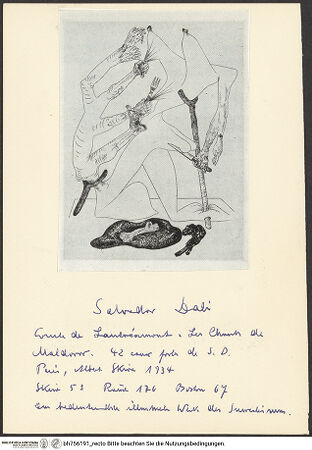 Salvador Dali
Comte de Lautréamont. Les Chants de
Maldoror. 42 eaux fortes de S. D.
Paris, Albert Skira 1934
Skira 53 Rauch 176 Boston 67
Ein bedeutendstes illustrierte Werk des Surrealismus.
bh756191_recto Bitte beachten Sie die Nutzungsbedingungen.